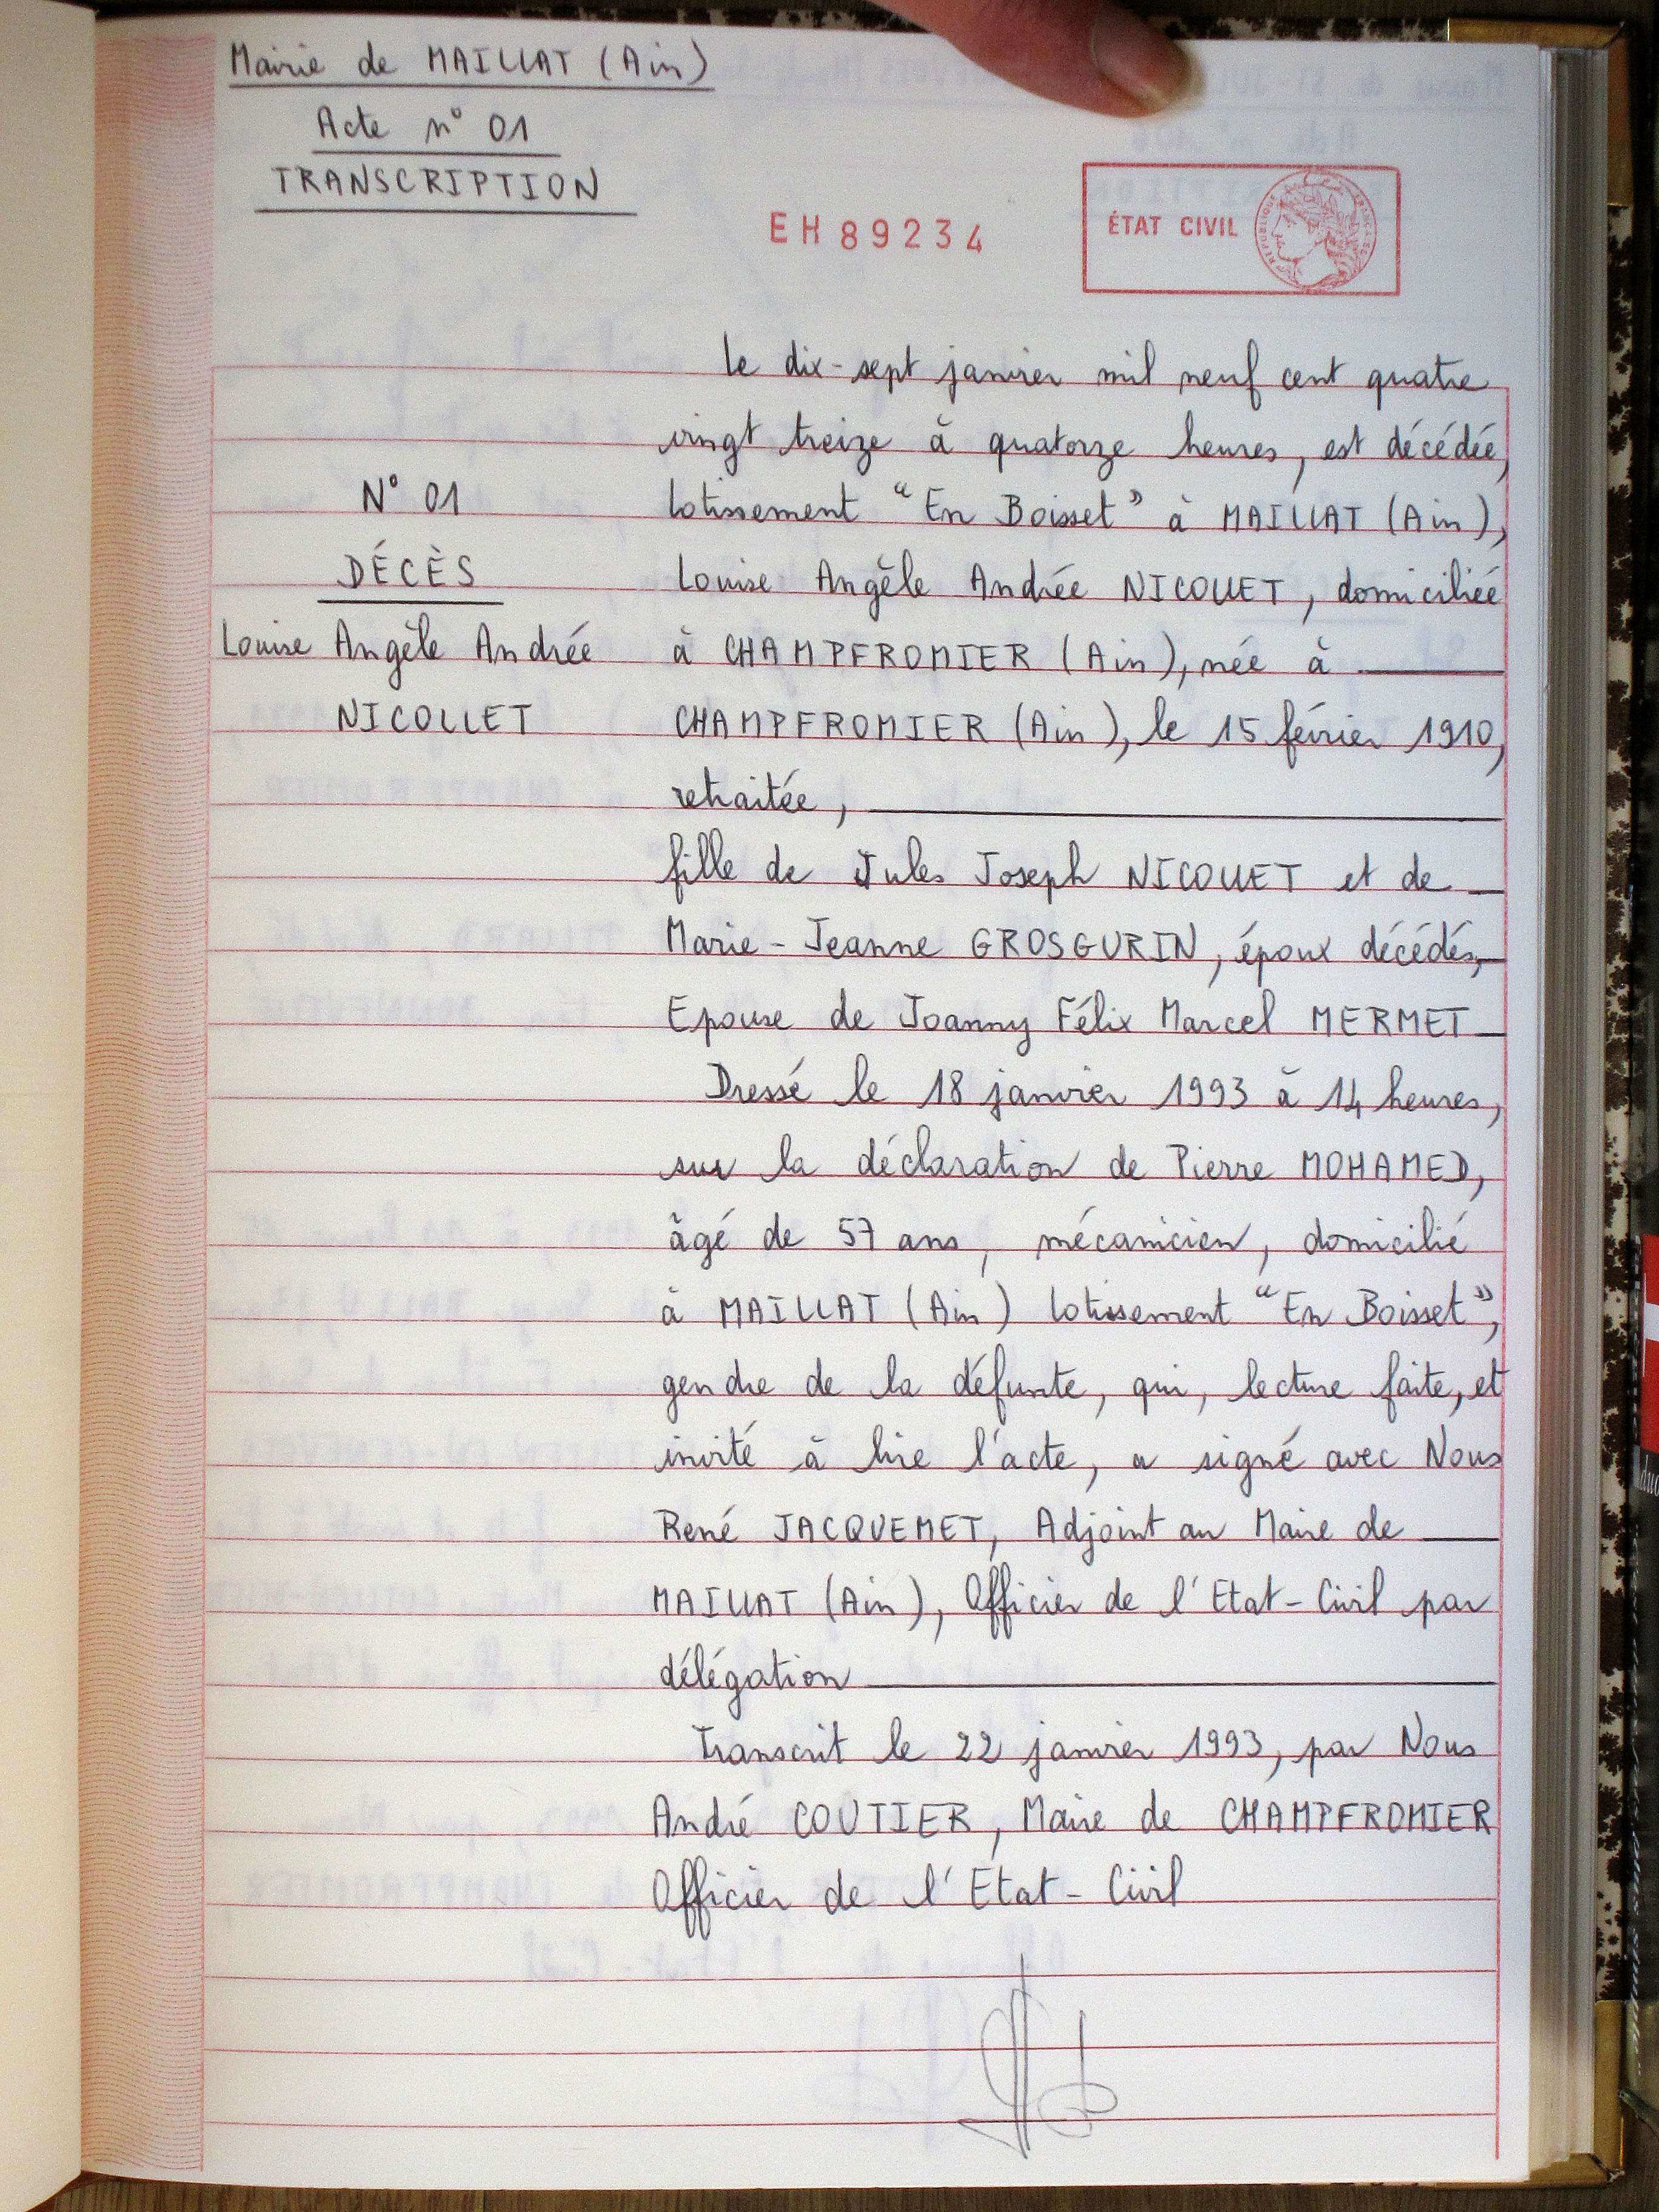 Mairie de MAILLAT (Ain)
Acte n° 01
TRANSCRIPTION
EH89234
ÉTAT CIVIL
RÉPUBLIQUE FRANÇAISE
le dix-sept janvier mil neuf cent quatre
vingt treize à quatorze heures, est décédée,
lotissement "En Boisset" à MAILLAT (Ain),
Louise Angèle Andrée NICOLLET, domiciliée
à CHAMPFROMIER (Ain), née à
CHAMPFROMIER (Ain), le 15 février 1910,
retraitée,
fille de Jules Joseph NICOLLET et de
Marie-Jeanne GROSGURIN, époux décédés,
Epouse de Joanny Félix Marcel MERMET
Dressé le 18 janvier 1993 à 14 heures,
sur la déclaration de Pierre MOHAMED,
âgé de 57 ans, mécanicien, domicilié
à MAILLAT (Ain) lotissement "En Boisset",
gendre de la défunte, qui, lecture faite, et
invité à lire l'acte, a signé avec Nous
René JACQUEMET, Adjoint au Maire de
MAILLAT (Ain), Officier de l'Etat-Civil par
délégation
Transcrit le 22 janvier 1993, par Nous
André COUTIER, Maire de CHAMPFROMIER
Officier de l'Etat-Civil
N° 01
DÉCÈS
Louise Angèle Andrée
NICOLLET